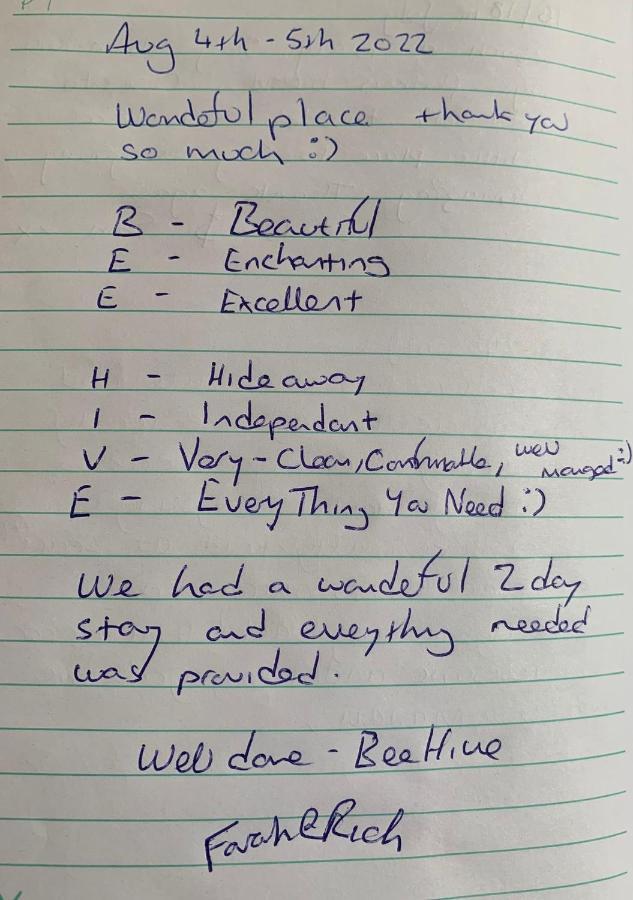 Aug 4th - 5th 2022
Wondeful place thank you
so much :)
B - Beautiful
E - Enchanting
E - Excellent
H - Hideaway
I - Independant
V - Very - Clean, Comfortable, well managed :)
E - EveryThing You Need :)
We had a wondeful 2 day
stay and eveything needed
was provided.
Well done - BeeHive
Farah & Rich